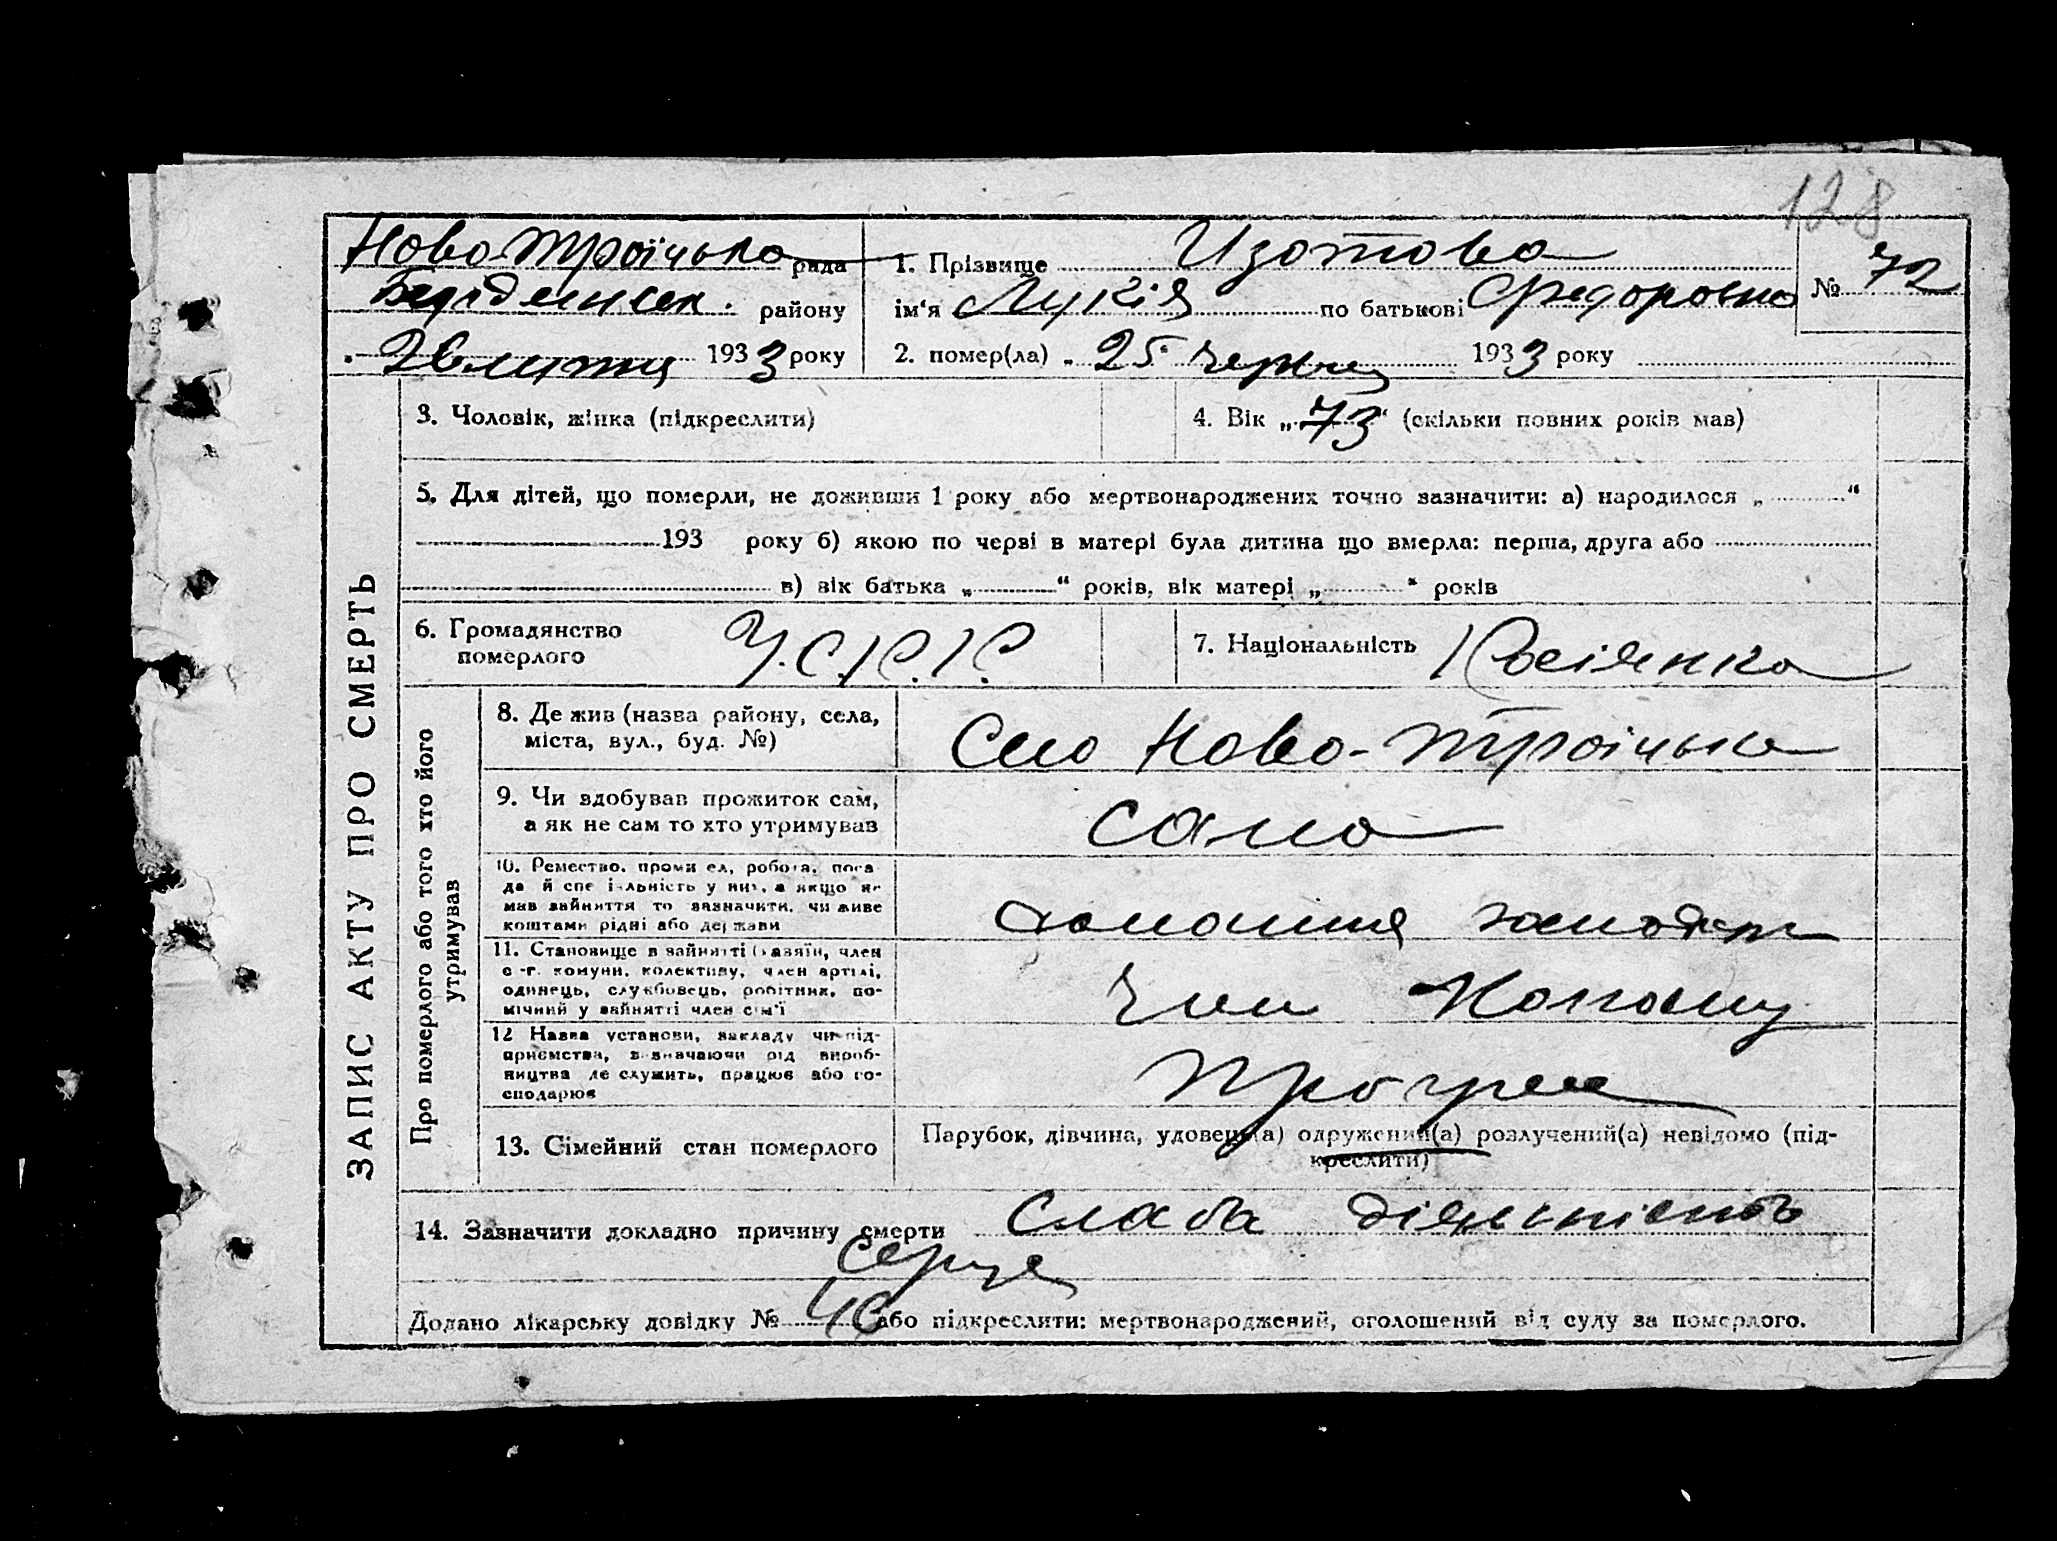 128
Ново Троїцька рада
Бердянськ. району
2 липня 1933 року
1. Прізвище Изотова
ім‘я Лукія по батькові Федоровна
№ 72
2. помер(ла) „ 25 червня 1933 року
ЗАПИС АКТУ ПРО СМЕРТЬ
3. Чоловік, жінка (підкреслити)
4. Вік „73“ (скільки повних років мав)
5. Для дітей, що померли, не доживши 1 року або мертвонароджених точно зазначити: а) народилося „ “
193 року б) якою по черві в матері була дитина що вмерла: перша, друга або
в) вік батька „ “ років, вік матері „ “ років
6. Громадянство
померлого
У.С.Р.Р.
7. Національність Росіянка
Про померлого або того хто його
утримував
8. Де жив (назва району, села,
міста, вул., буд. №)
Село Ново-Троїцька
9. Чи здобував прожиток сам,
а як не сам то хто утримував
сама
10. Ремество, промисел, робота, поса-
да й спеціяльність у них, а якщо не
мав зайняття то зазначити, чи живе
коштами рідні або держави
домашня господарк
11. Становище в зайнятті (хазяїн, член
с.-г. комуни, колективу, член артілі,
одинець, службовець, робітник, по-
мічний у зайнятті член сім'ї
Член Колгоспу
12 Назва установи, закладу чи під-
приємства, визначаючи рід вироб-
ництва де служить, працює або го-
сподарює
Прогрес
13. Сімейний стан померлого
Парубок, дівчина, удовець(а) одружений(а) розлучений(а) невідомо (під-
креслити)
14. Зазначити докладно причину смерти Слаба діяльність
серця
Додано лікарську довідку № 46 або підкреслити: мертвонароджений, оголошений від суду за померлого.